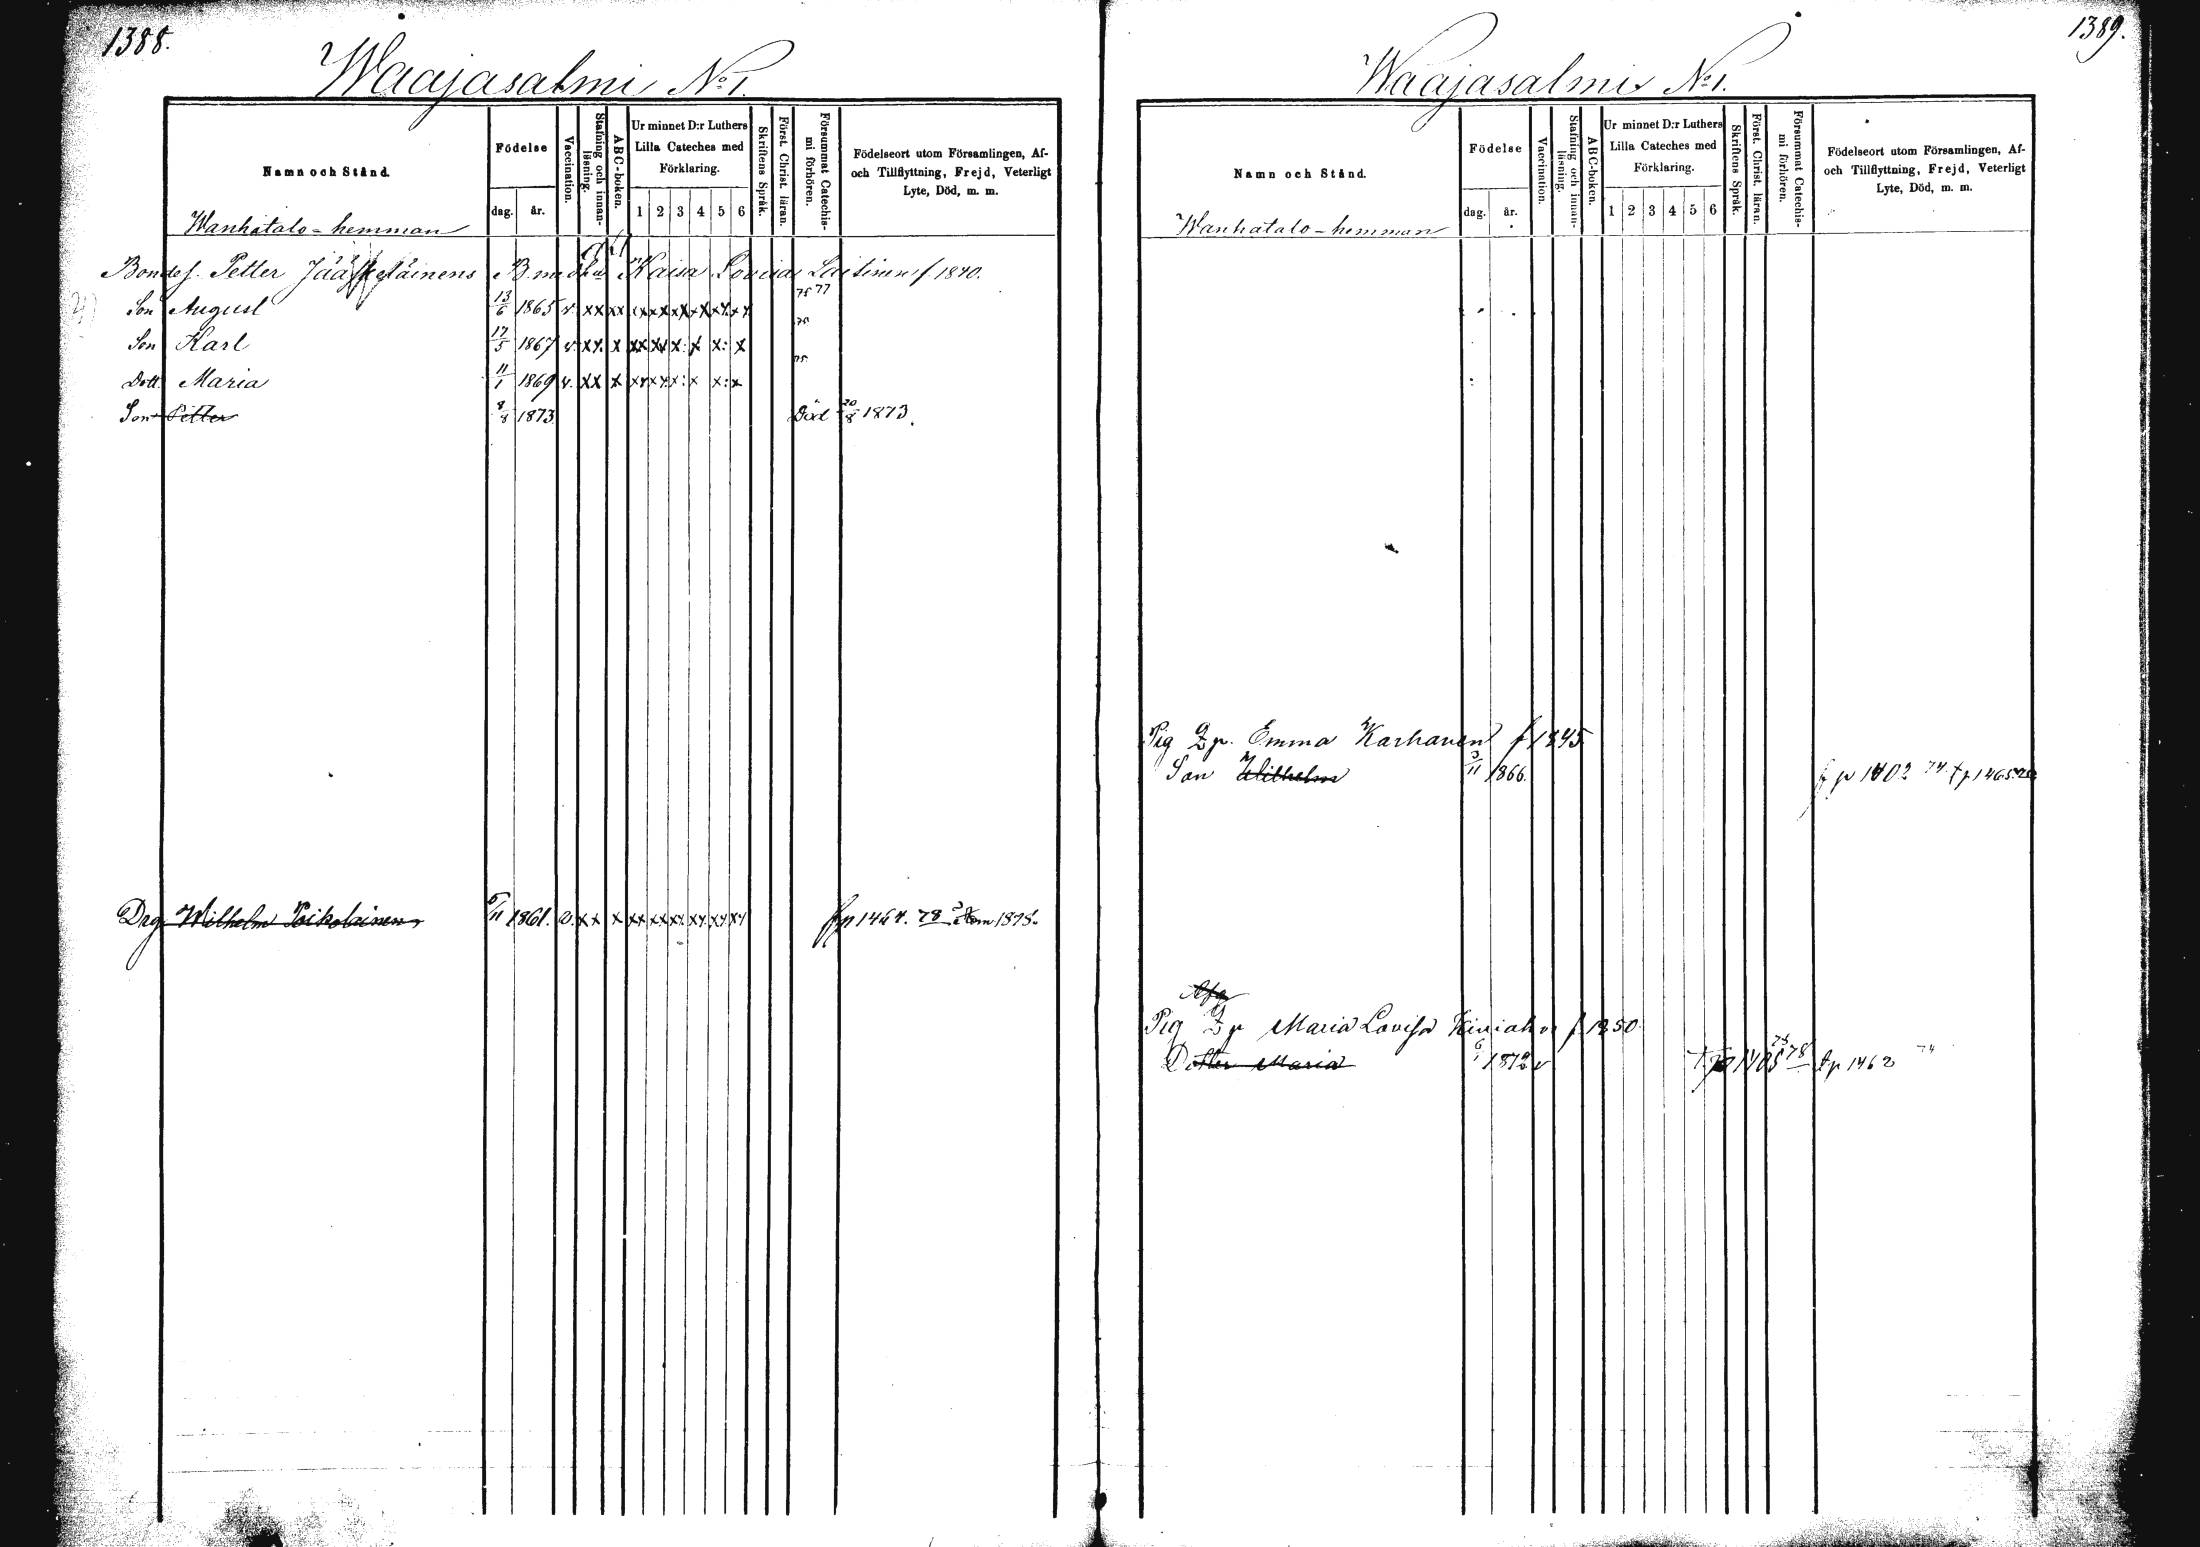 1388.
Waajasalmi No 1.
Namn och Stånd.
Födelse
dag. år.
Vaccination.
Stafning och innan-läsning.
ABC-boken.
Ur minnet D:r Luthers Lilla Cateches med Förklaring.
1 2 3 4 5 6
Skriftens Språk.
Först. Christ. läran.
Försummat Catechis-mi förhören.
Födelseort utom Församlingen, Af- och Tillflyttning, Frejd, Veterligt Lyte, Död, m. m.
Wanhatalo-hemman
Bondes. Petter Jääskeläinens Kaisa Lovisa Laitinen f 1840.
Son August 13/6 1865 v. xx xx xx xx xx xx xx xx 75 77
Son Karl 17/5 1867 v. xx x xx xx x: x x: x 75
Dott. Maria 11/1 1869 v. xx x xx xx x: x x: x 75
Son Petter 8/8 1873 Död 20/8 1873.
Drg Wilhelm Toikolainen 5/11 1861. v. xx x xx xx xx xx xx xx fp 1464. 78 1878.
1389.
Waajasalmi No 1.
Namn och Stånd.
Födelse
dag. år.
Vaccination.
Stafning och innan-läsning.
ABC-boken.
Ur minnet D:r Luthers Lilla Cateches med Förklaring.
1 2 3 4 5 6
Skriftens Språk.
Först. Christ. läran.
Försummat Catechis-mi förhören.
Födelseort utom Församlingen, Af- och Tillflyttning, Frejd, Veterligt Lyte, Död, m. m.
Wanhatalo-hemman
Pig Emma Karhunen f 1845
Son Wilhelm 3/11 1866. fp 1402 74 tp 1465
Pig Maria Lovisa f 1850
Dotter Maria 6/1 1872 v 1405 75 78 tp 1462 74